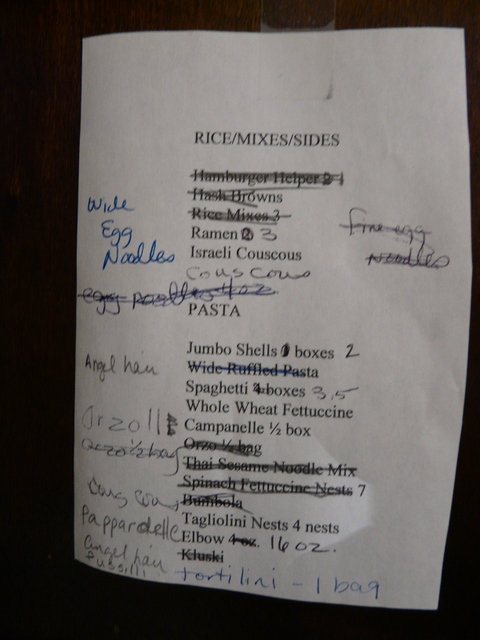 RICE/MIXES/SIDES
Hamburger Helper 2 1
Hash Browns
Rice Mixes 3
Ramen 2 3
Israeli Couscous
Couscous
Wide
Egg
Noodles
fine egg
noodles
egg noodles 4 oz.
PASTA
Jumbo Shells 1 boxes 2
Angel hair
Wide Ruffled Pasta
Spaghetti 4 boxes 3,5
Whole Wheat Fettuccine
Orzo
Campanelle ½ box
Orzo 1/2 bag
Orzo ½ bag
Thai Sesame Noodle Mix
Spinach Fettuccine Nests 7
Cous Cous
Bumbola
Pappardelle
Tagliolini Nests 4 nests
Elbow 4 oz. 16 oz.
Angel hair
Kluski
fussilli
tortilini - 1 bag